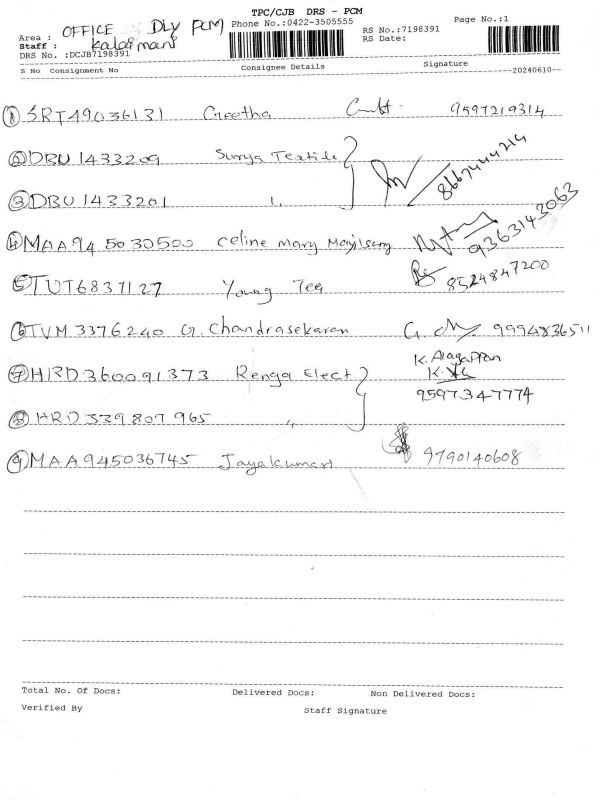 TPC/CJB DRS - PCM
Area : OFFICE DLY PCM Phone No.:0422-3505555 RS No.:7198391 Page No.:1
Staff : Kalaimani RS Date:
DRS No. :DCJB7198391
S No Consignment No Consignee Details Signature
20240610
1 SRT49036131 Geetha 9597219314
2 DBU 1433209 Surya Textile 8667444214
3 DBU 1433201 "
4 MAA94 5030500 Celine Mary 9363143063
5 TUT6837127 Young Tea 8524847200
6 TVM 3376240 G. Chandrasekaran 9994836511
7 HRD360091373 Renga Elect K. Alagappan
9597347774
8 HRD 339807965 "
9 MAA945036745 Jayakumari 9790140608
Total No. Of Docs: Delivered Docs: Non Delivered Docs:
Verified By Staff Signature